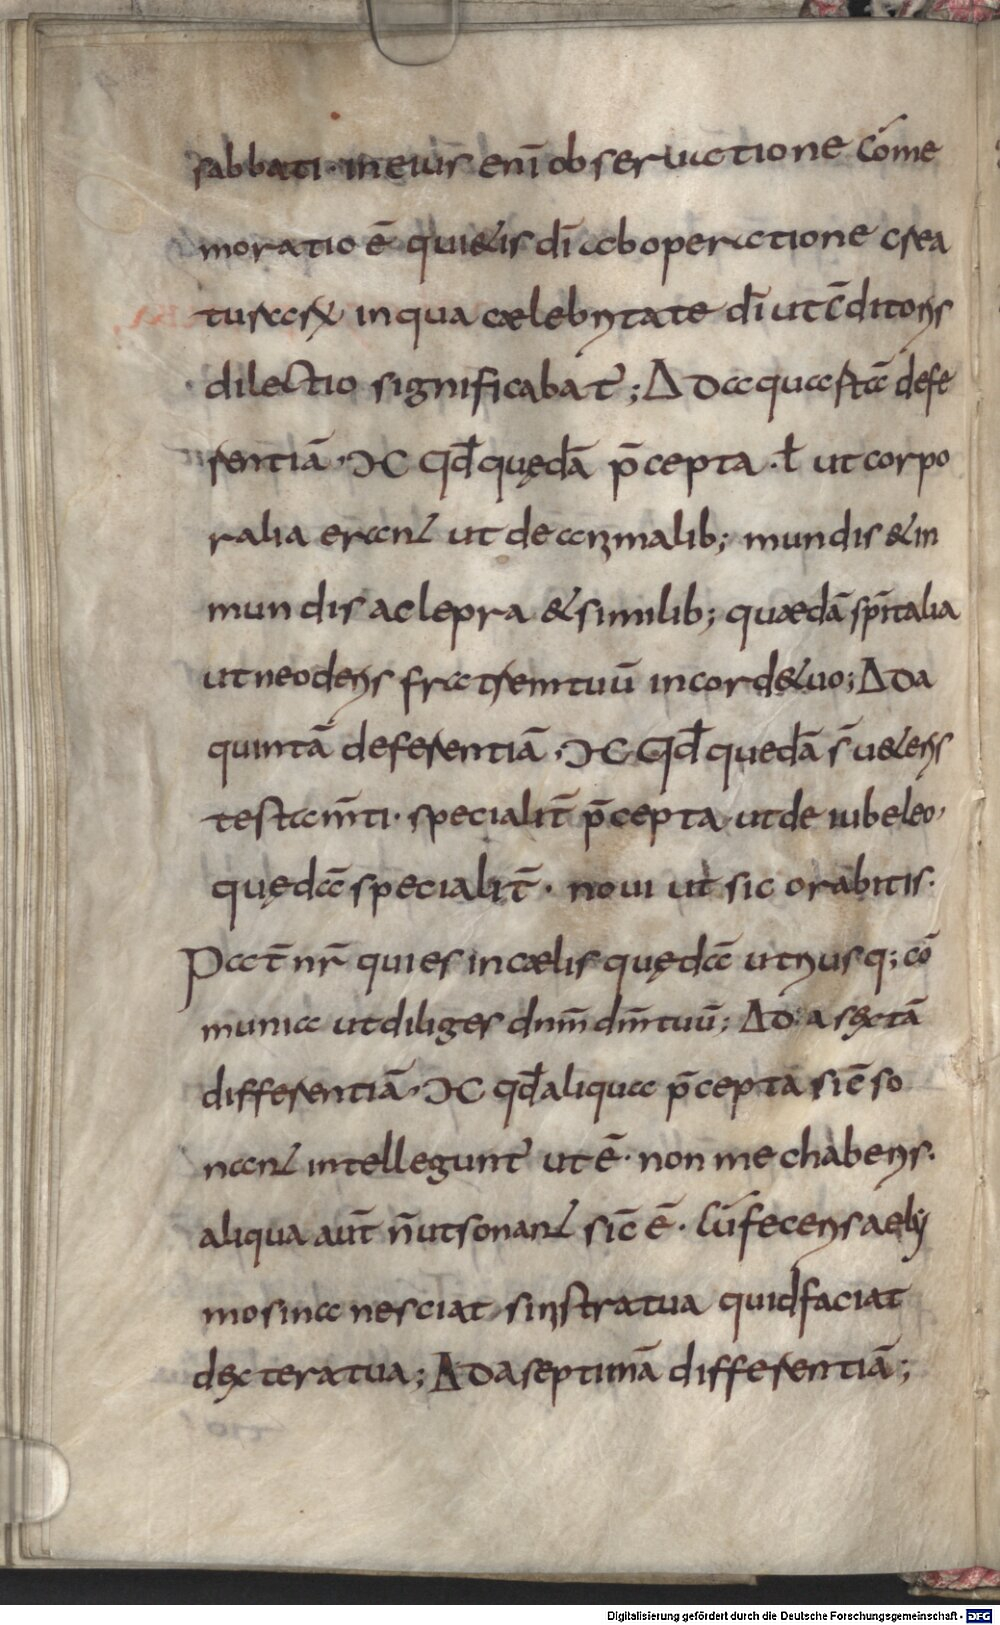 sabbati · in eius eni̅ obseruatione co̅me
moratio e̅ quietis di̅ ab operatione crea
turaru̅ in qua caelebritate di̅ ut c̅ditoris
dilectio significabat̅ ; Ad aquarta̅ defe
rentia̅ · IC qd̅ quęda̅ p̅cepta · l̅ ut corpo
ralia erant ut de animalib; mundis & in
mundis ac lepra & similib; quaeda̅ sp̅italia
ut ne oderis fratrem tuu̅ in corde tuo ; Ad a
quinta̅ deferentia̅ · IC Qd̅ queda̅ s̅ ueteris
testam̅ti · specialit̅ p̅cepta ut de iubeleo ·
quęda̅ specialit̅ · noui ut sic orabitis ·
Pat̅ nr̅ qui es in caelis quęda̅ utriusq; co̅
munia ut diliges dnm̅ dm̅ tuu̅ ; Ad a sexta̅
differentia̅ · IC qd̅ aliqua p̅cepta sic̅ so
nant intellegunt̅ ut e̅ · non mechaberis ·
aliqua aut̅ n̅ ut sonant sic̅ e̅ · Cu̅ feceris aely
mosina nesciat sinistra tua quid faciat
dextera tua ; Ad a septima̅ differentia̅ ;
Digitalisierung gefördert durch die Deutsche Forschungsgemeinschaft - DFG